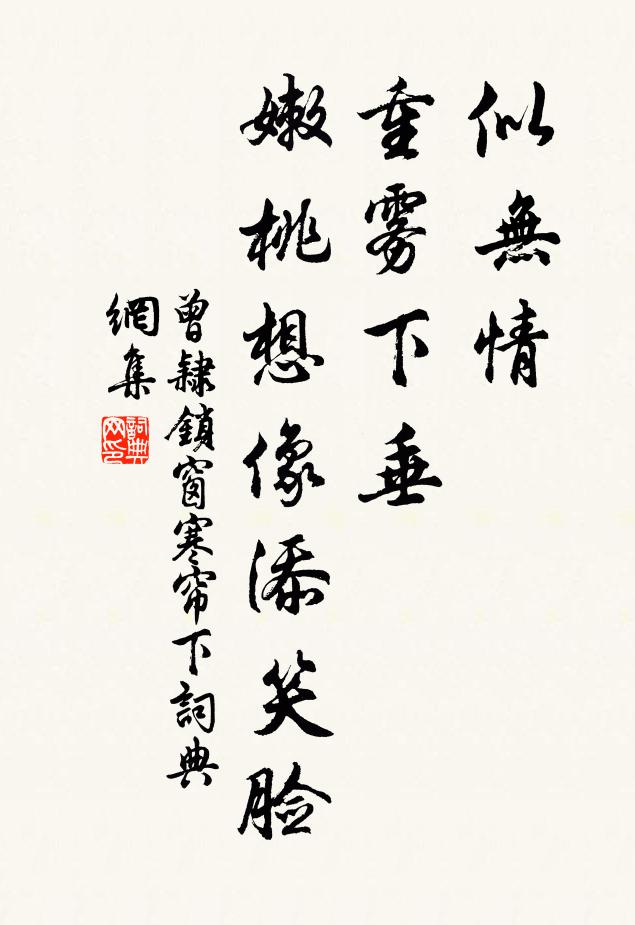 似無情
重雾下垂
嫩桃想像添笑脸
曾隸鎖窗寒帘下詞典
網集
詞典
网印